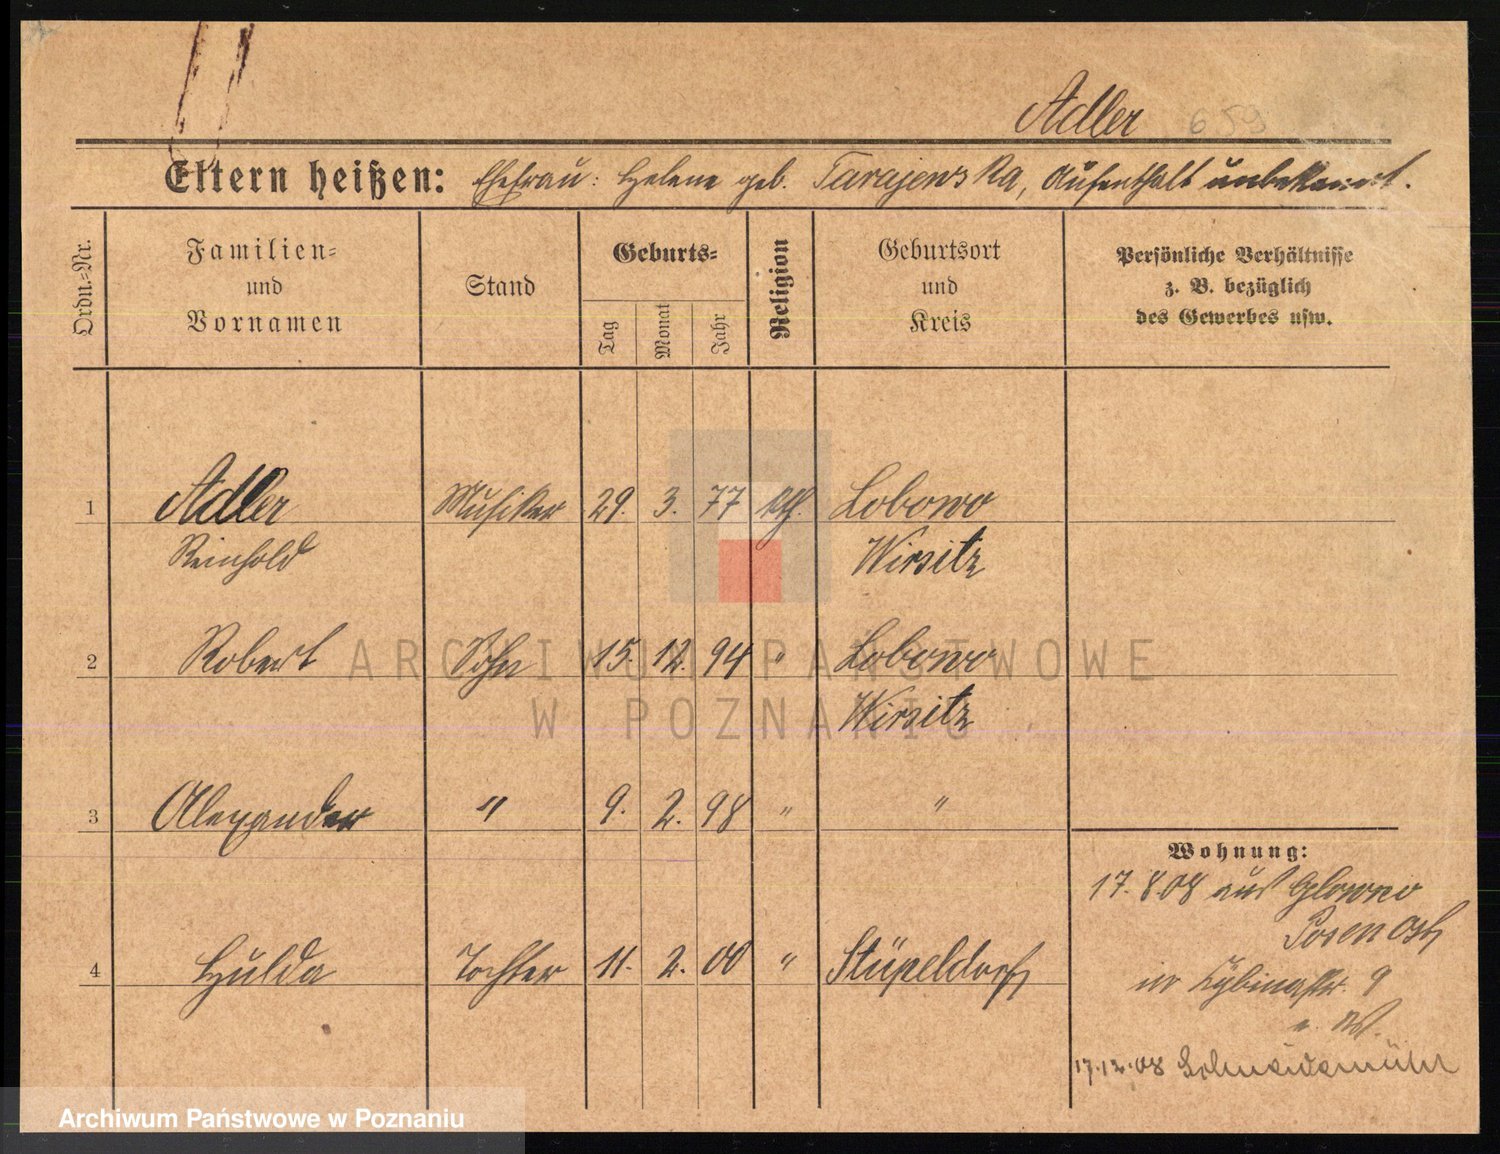 Adler 659
Eltern heißen: Ehefrau: Helene geb. Tarajewska, Aufenthalt unbekannt.
Ordn.=Nr.
Familien=
und
Vornamen
Stand
Geburts=
Tag
Monat
Jahr
Religion
Geburtsort
und
Kreis
Persönliche Verhältnisse
z. B. bezüglich
des Gewerbes usw.
1 Adler Musiker 29. 3. 77 kth. Lobowo
Reinhold Wirsitz
2 Robert Sohn 15. 12. 94 " Lobowo
Wirsitz
3 Alexander " 9. 2. 98 " "
Wohnung:
17.8.08 aus Glowno
Posen Ost
4 Hulda Tochter 11. 2. 00 " Stüpeldorf
in 9
17.12.08 Schneidemühl
ARCHIWUM PAŃSTWOWE
W POZNANIU
Archiwum Państwowe w Poznaniu